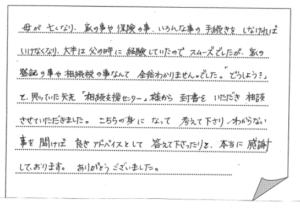 母が亡くなり、家の事や保険の事、いろんな事の手続きをしなければ
いけなくなり、大半は父の時に経験していたのでスムーズでしたが、家の
登記の事や相続税の事なんて全然わかりませんでした。"どうしよう?"
と、思っていた矢先「相続支援センター」様から封書をいただき相談
させていただきました。こちらの身になって考えて下さり、わからない
事を聞けば良きアドバイスとして答えて下さったりと、本当に感謝
しております。ありがとうございました。